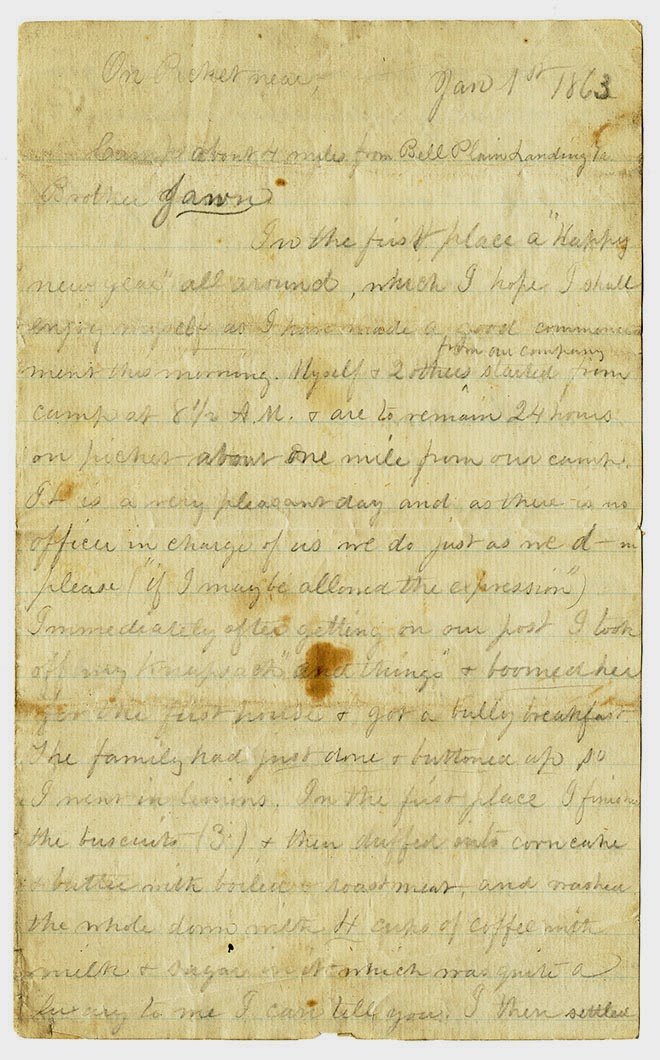 On Picket near, Jan 1st 1863
Camp about 4 miles from Bell Plain Landing Va
Brother Jawn
In the first place a "Happy
new year" all around, which I hope I shall
enjoy myself as I have made a good commence
from our company
ment this morning. Myself & 2 others started from
camp at 8 1/2 A.M. & are to remain 24 hours
on picket about one mile from our camp.
It is a very pleasant day and as there is no
officer in charge of us we do just as we d—m
please ("if I may be allowed the expression")
Immediately after getting on our post I took
off my knapsack "and things" & boomed her
for the first house & got a bully breakfast.
The family had just done & buttoned up so
I went in lemons. In the first place I finished
the buscuits (3) & then duffed into corn cake
& butter with boiled & roast meat, and washed
the whole down with 4 cups of coffee with
milk & sugar in it which was quite a
luxury to me I can tell you. I then settled